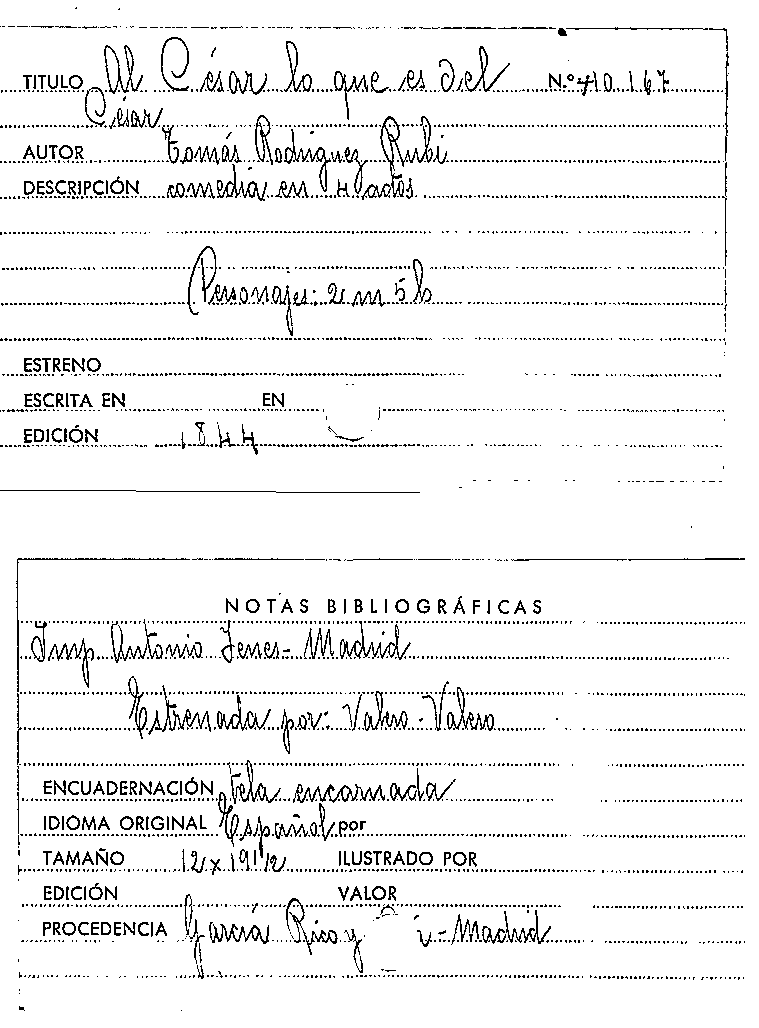 TITULO Al César lo que es del N.º 410.167
César
AUTOR Tomás Rodriguez Rubi
DESCRIPCIÓN comedia en 4 actos
Personajes: 2 m 5 h
ESTRENO
ESCRITA EN EN
EDICIÓN 1844
NOTAS BIBLIOGRÁFICAS
Imp Antonio Yenes - Madrid
Estrenada por: Valero - Valero
ENCUADERNACIÓN tela encarnada
IDIOMA ORIGINAL Español por
TAMAÑO 12 x 19 1/2 ILUSTRADO POR
EDICIÓN VALOR
PROCEDENCIA García Rico y - Madrid